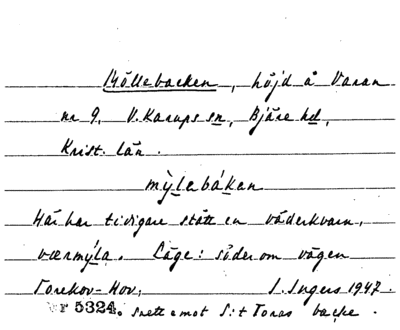 Möllebacken, höjd å Varan
nr 9, V. Karups sn, Bjäre hd,
Krist. län.
mỳlebákan
Här har tidigare stått en väderkvarn,
værmýla. Läge: söder om vägen
Torekov-Hov. I. Ingers 1947.
Nr 5324. snett emot S:t Toras backe.